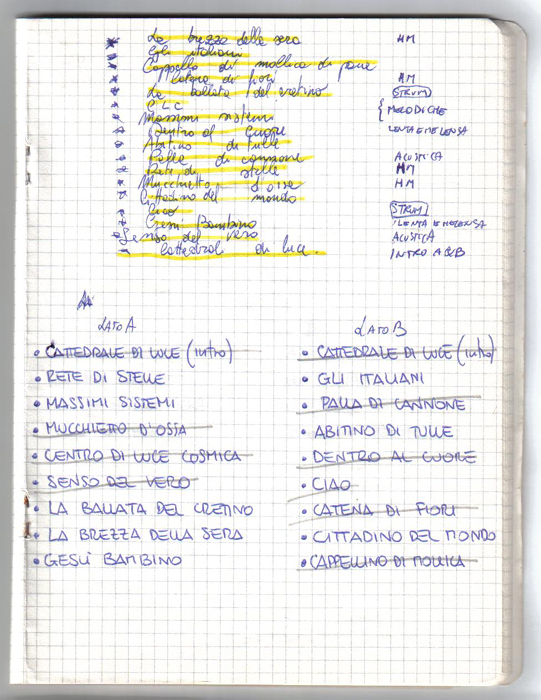 La brezza della sera HM
Gli italiani
Cappello di mollica di pane
Catena di fiori HM
La ballata del cretino STRUM
C L C MELODICHE
Massimi sistemi
Dentro al cuore LENTA E MELENSA
Abitino di tulle
Palla di cannone ACUSTICA
Rete di stelle HM
Mucchietto d'ossa HM
Cittadino del mondo
Ciao STRUM
Gesù Bambino LENTA E MELENSA
Senso del vero ACUSTICA
Cattedral di luce. INTRO A & B
LATO A
• CATTEDRALE DI LUCE (intro)
• RETE DI STELLE
• MASSIMI SISTEMI
• MUCCHIETTO D'OSSA
• CENTRO DI LUCE COSMICA
• SENSO DEL VERO
• LA BALLATA DEL CRETINO
• LA BREZZA DELLA SERA
• GESÙ BAMBINO
LATO B
• CATTEDRALE DI LUCE (intro)
• GLI ITALIANI
• PALLA DI CANNONE
• ABITINO DI TULLE
• DENTRO AL CUORE
• CIAO
• CATENA DI FIORI
• CITTADINO DEL MONDO
• CAPPELLINO DI MOLLICA